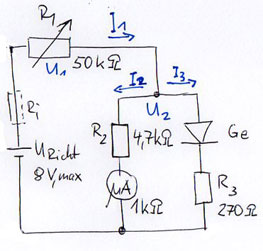 R1
I1
U1
50kΩ
I2
I3
U2
Ri
R2
4,7kΩ
Ge
URicht
8V,max
µA
1kΩ
R3
270Ω